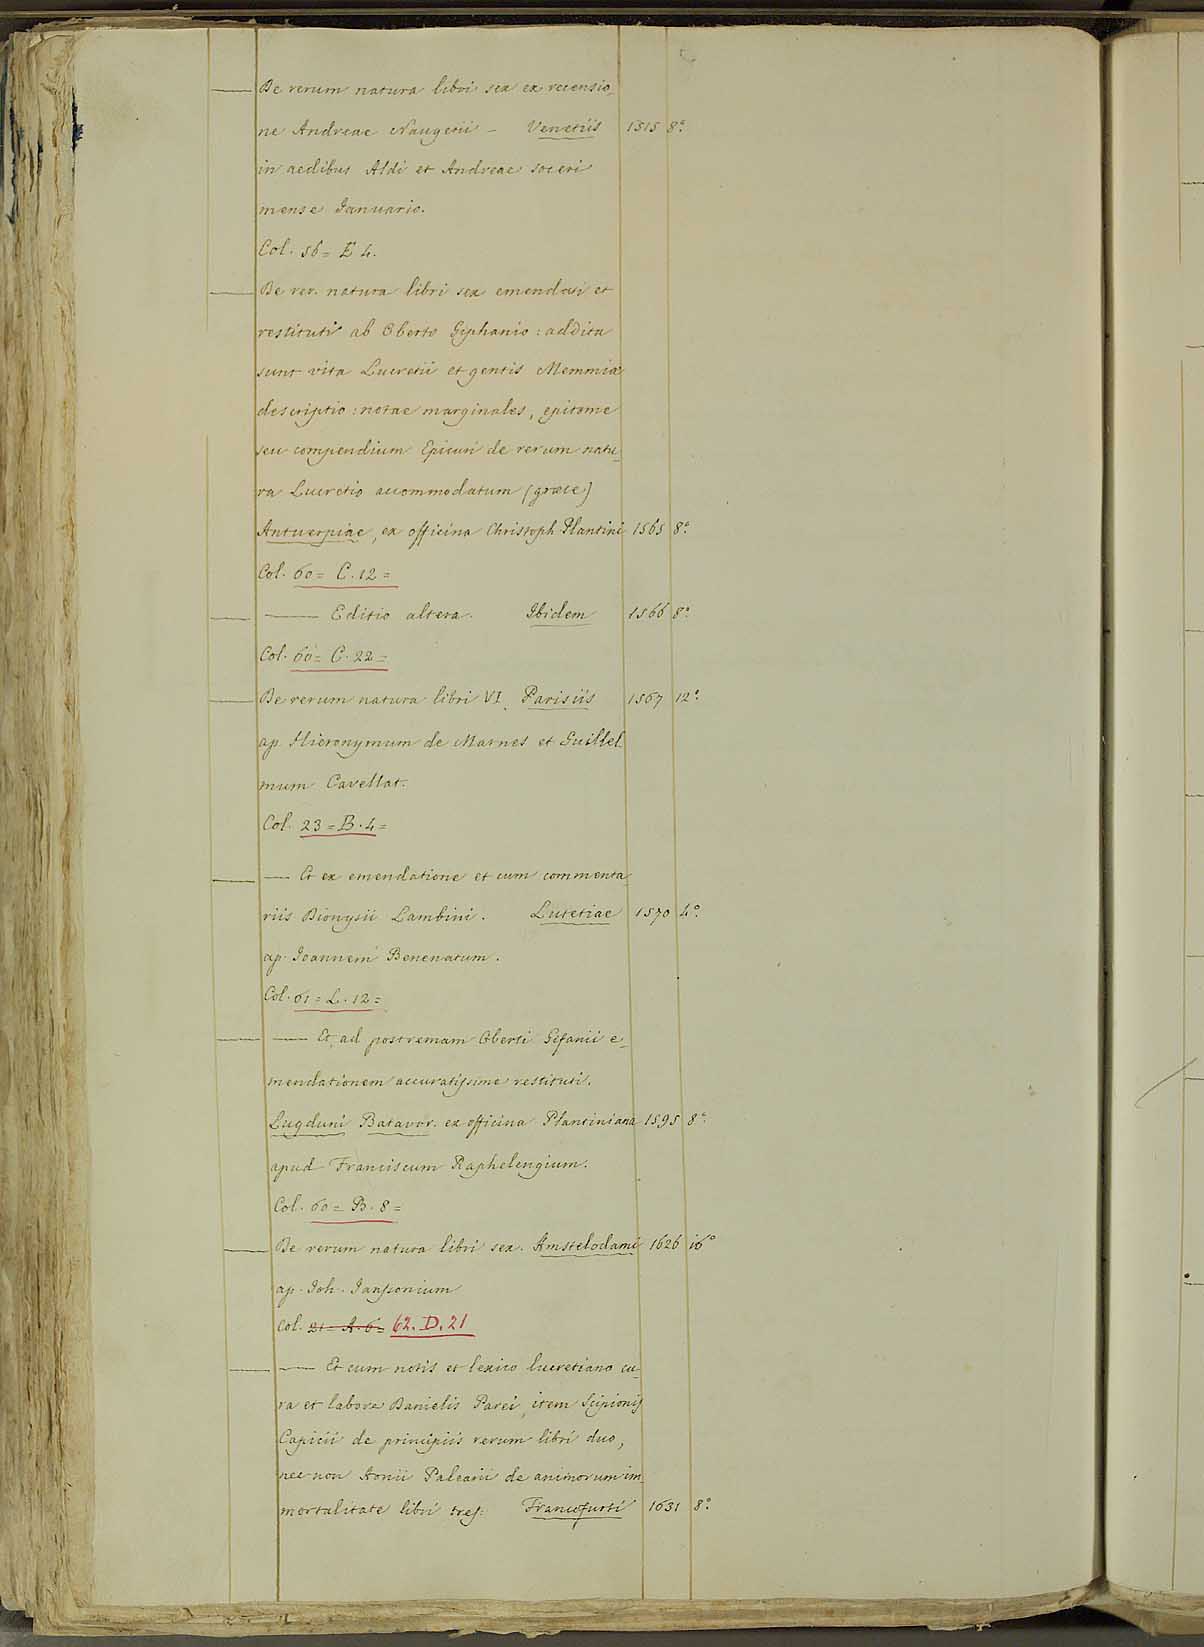 — De rerum natura libri sex ex recensio_
ne Andreae Naugerii – Venetiis 1515 8.°
in aedibus Aldi et Andreae soceri
mense Ianuario.
Col. 56 = E 4.
— De rer. natura libri sex emendati et
restituti ab Oberto Giphanio: addita
sunt vita Lucretii et gentis Memmiae
descriptio: notae marginales, epitome
seu compendium Epicuri de rerum natu_
ra Lucretio accommodatum (graece)
Antuerpiae, ex officina Christoph Plantini 1565 8.°
Col. 60 = C. 12 =
— — Editio altera. Ibidem 1566 8.°
Col. 60 = C. 22 =
— De rerum natura libri VI. Parisiis 1567 12.°
ap. Hieronymum de Marnes et Guillel_
mum Cavellat.
Col. 23 = B. 4 =
— — Et ex emendatione et cum commenta_
riis Dionysii Lambini. Lutetiae 1570 4.°
ap. Ioannem Benenatum.
Col. 61 = L. 12 =
— — Et, ad postremam Oberti Gifanii e_
mendationem accuratissime restituti.
Lugduni Batavor. ex officina Plantiniana 1595 8.°
apud Franciscum Raphelengium.
Col. 60 = B. 8 =
— De rerum natura libri sex. Amstelodami 1626 16°
ap. Joh. Janssonium
Col. 21 = A. 6 = 62. D. 21
— — Et cum notis et lexico lucretiano cu_
ra et labore Danielis Parei, item Scipionis
Capicii de principiis rerum libri duo,
nec non Aonii Palearii de animorum im_
mortalitate libri tres. Francofurti 1631 8.°